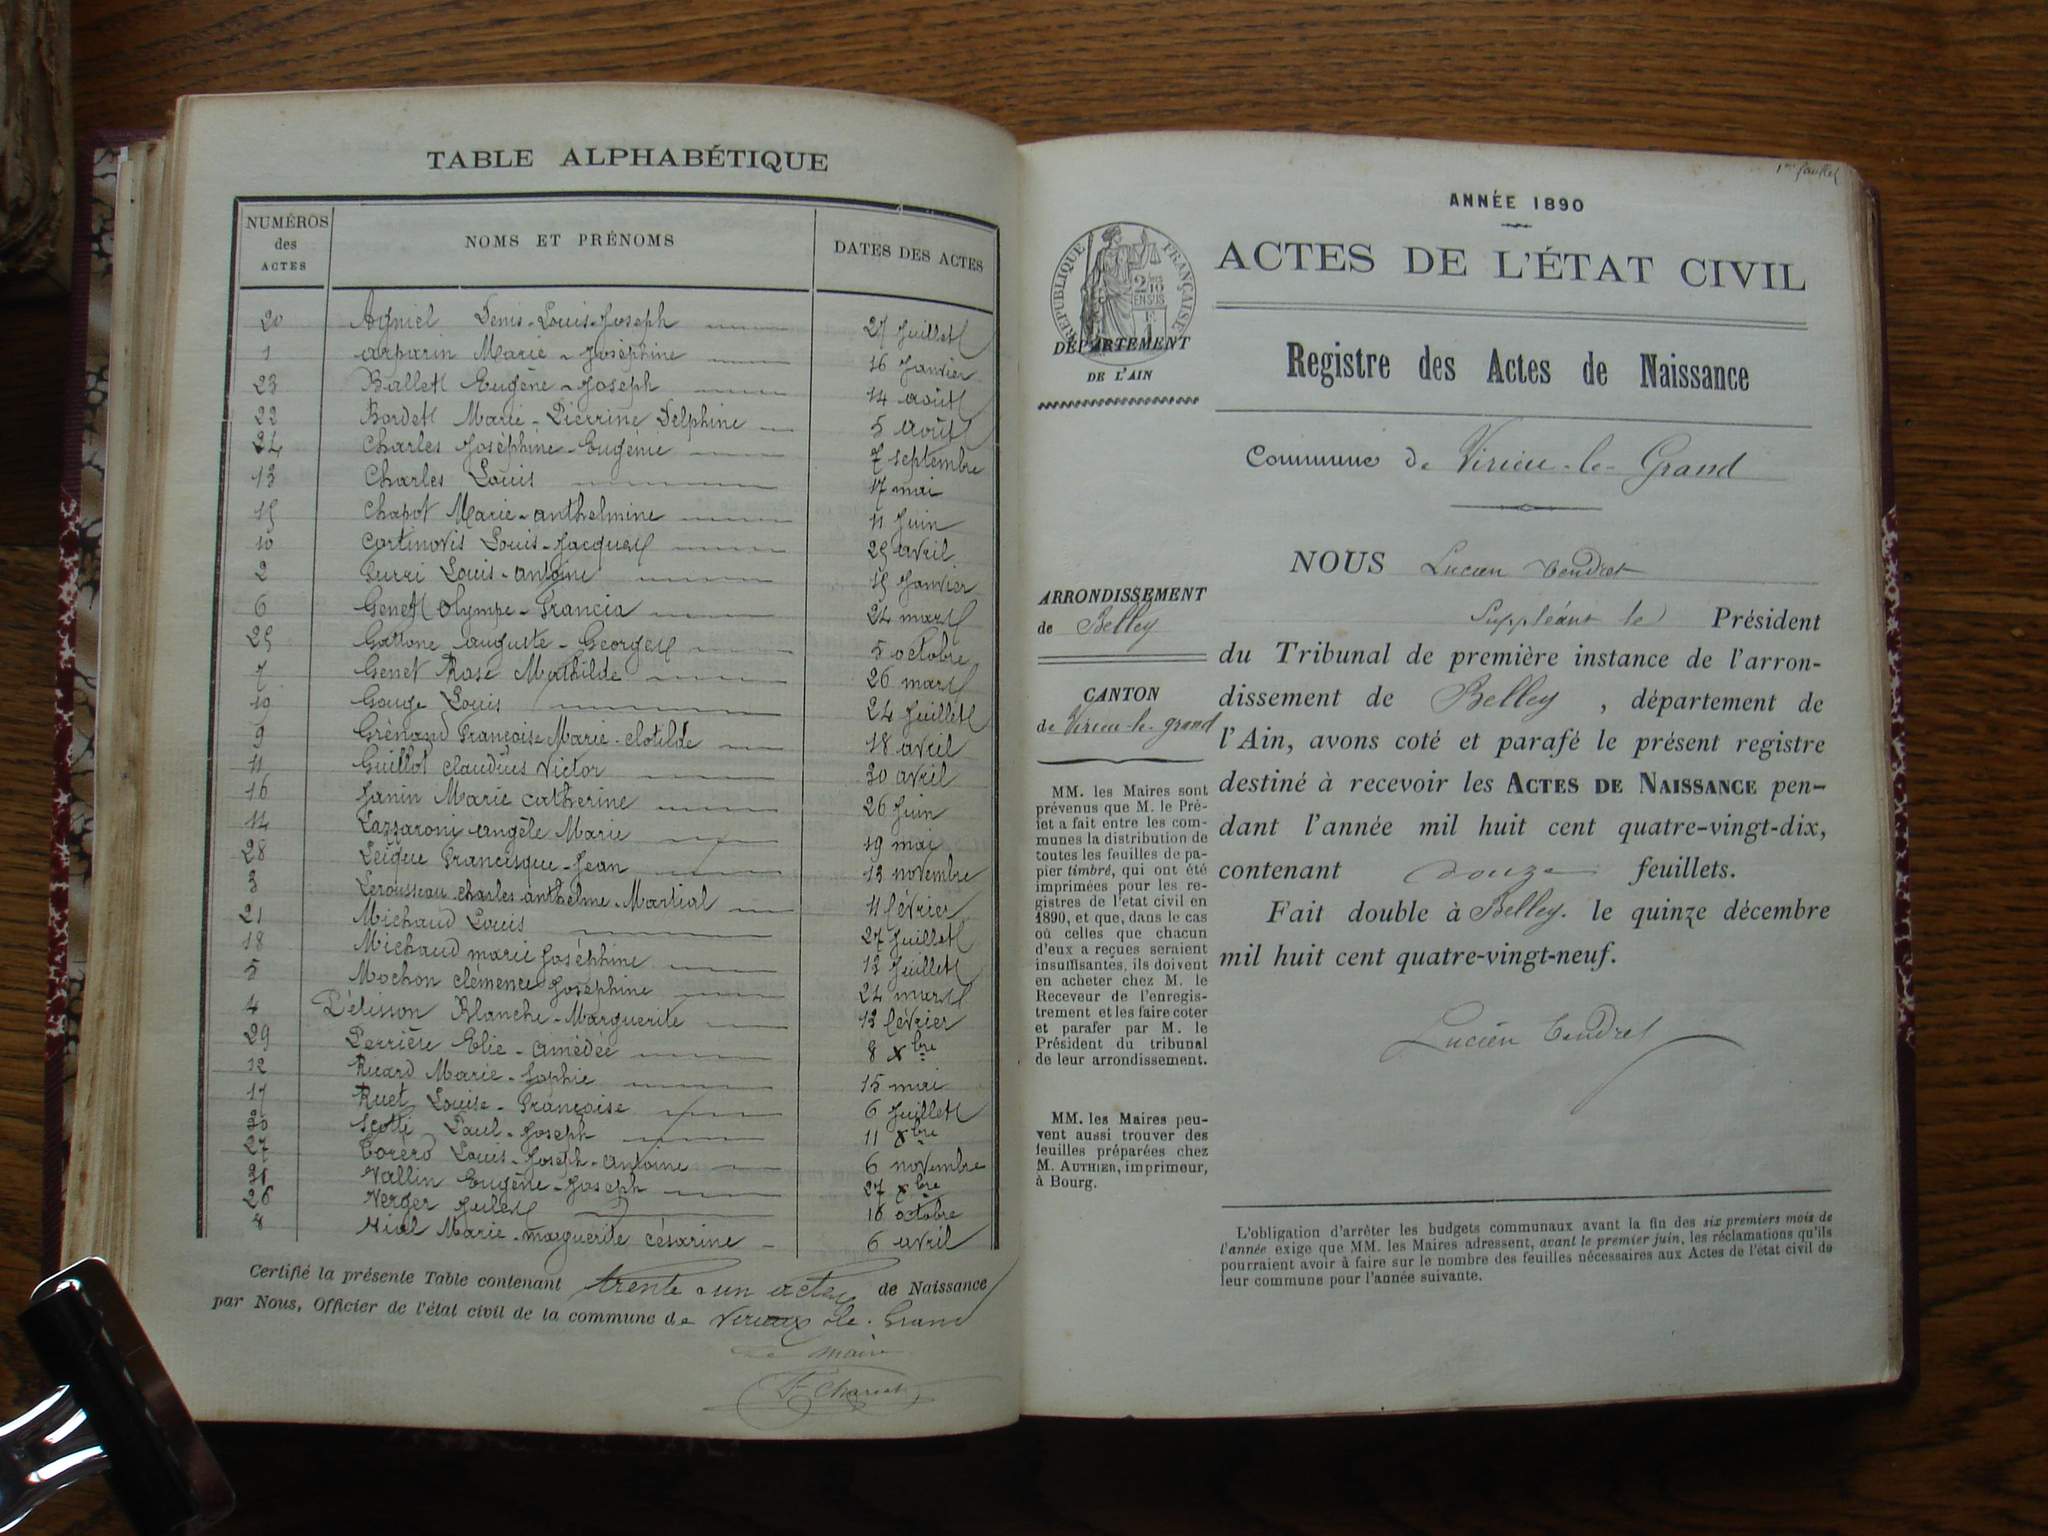 TABLE ALPHABÉTIQUE
NUMÉROS des ACTES NOMS ET PRÉNOMS DATES DES ACTES
20 Denis-Louis-Joseph 27 Juillet
1 Arparin Marie-Joséphine 16 Janvier
23 Ballet Eugène-Joseph 14 août
22 Bordet Marie-Pierrine Delphine 5 août
24 Charles Joséphine-Eugénie 7 septembre
13 Charles Louis 17 mai
15 Chapot Marie-anthelmine 11 Juin
10 Cortinovis Louis-Jacques 25 avril
2 Louis-Antoine 15 Janvier
6 Genet Olympe-Francia 24 mars
25 Gattone auguste-Georges 5 octobre
7 Genet Rose Mathilde 26 mars
19 Gouge Louis 24 Juillet
9 Grénard Françoise Marie-clotilde 18 avril
11 Guillot claudius Victor 30 avril
16 Janin Marie catherine 26 Juin
14 Lazzaroni angèle Marie 19 mai
28 Francisque-Jean 13 novembre
3 Lerousseau charles anthelme-Martial 11 février
21 Michaud Louis 27 Juillet
18 Michaud marie Joséphine 13 Juillet
5 Mochon clémence Joséphine 24 mars
4 Pélisson Blanche-Marguerite 13 février
29 Perrière Elie-Amédée 8 Xbre
12 Ricard Marie-Sophie 15 mai
17 Ruet Louise-Françoise 6 Juillet
30 Scotti Paul-Joseph 11 Xbre
27 Torero Louis-Joseph-Antoine 6 novembre
31 Vallin Eugène-Joseph 27 Xbre
26 Verger Jules 16 octobre
8 Vial Marie-marguerite césarine 6 avril
Certifié la présente Table contenant trente-un actes de Naissance
par Nous, Officier de l'état civil de la commune de Virieux-le-Grand
Le Maire
1er feuillet
ANNÉE 1890
RÉPUBLIQUE FRANÇAISE
ACTES DE L'ÉTAT CIVIL
DÉPARTEMENT
DE L'AIN
Registre des Actes de Naissance
Commune de Virieu-le-Grand
NOUS Lucien Tendret
Suppléant le Président
du Tribunal de première instance de l'arron-
dissement de Belley, département de
l'Ain, avons coté et parafé le présent registre
destiné à recevoir les ACTES DE NAISSANCE pen-
dant l'année mil huit cent quatre-vingt-dix,
contenant douze feuillets.
Fait double à Belley. le quinze décembre
mil huit cent quatre-vingt-neuf.
Lucien Tendret
ARRONDISSEMENT
de Belley
CANTON
de Virieu-le-grand
MM. les Maires sont
prévenus que M. le Pré-
fet a fait entre les com-
munes la distribution de
toutes les feuilles de pa-
pier timbré, qui ont été
imprimées pour les re-
gistres de l'état civil en
1890, et que, dans le cas
où celles que chacun
d'eux a reçues seraient
insuffisantes, ils doivent
en acheter chez M. le
Receveur de l'enregis-
trement et les faire coter
et parafer par M. le
Président du tribunal
de leur arrondissement.
MM. les Maires peu-
vent aussi trouver des
feuilles préparées chez
M. AUTHIER, imprimeur,
à Bourg.
L'obligation d'arrêter les budgets communaux avant la fin des six premiers mois de
l'année exige que MM. les Maires adressent, avant le premier juin, les réclamations qu'ils
pourraient avoir à faire sur le nombre des feuilles nécessaires aux Actes de l'état civil de
leur commune pour l'année suivante.